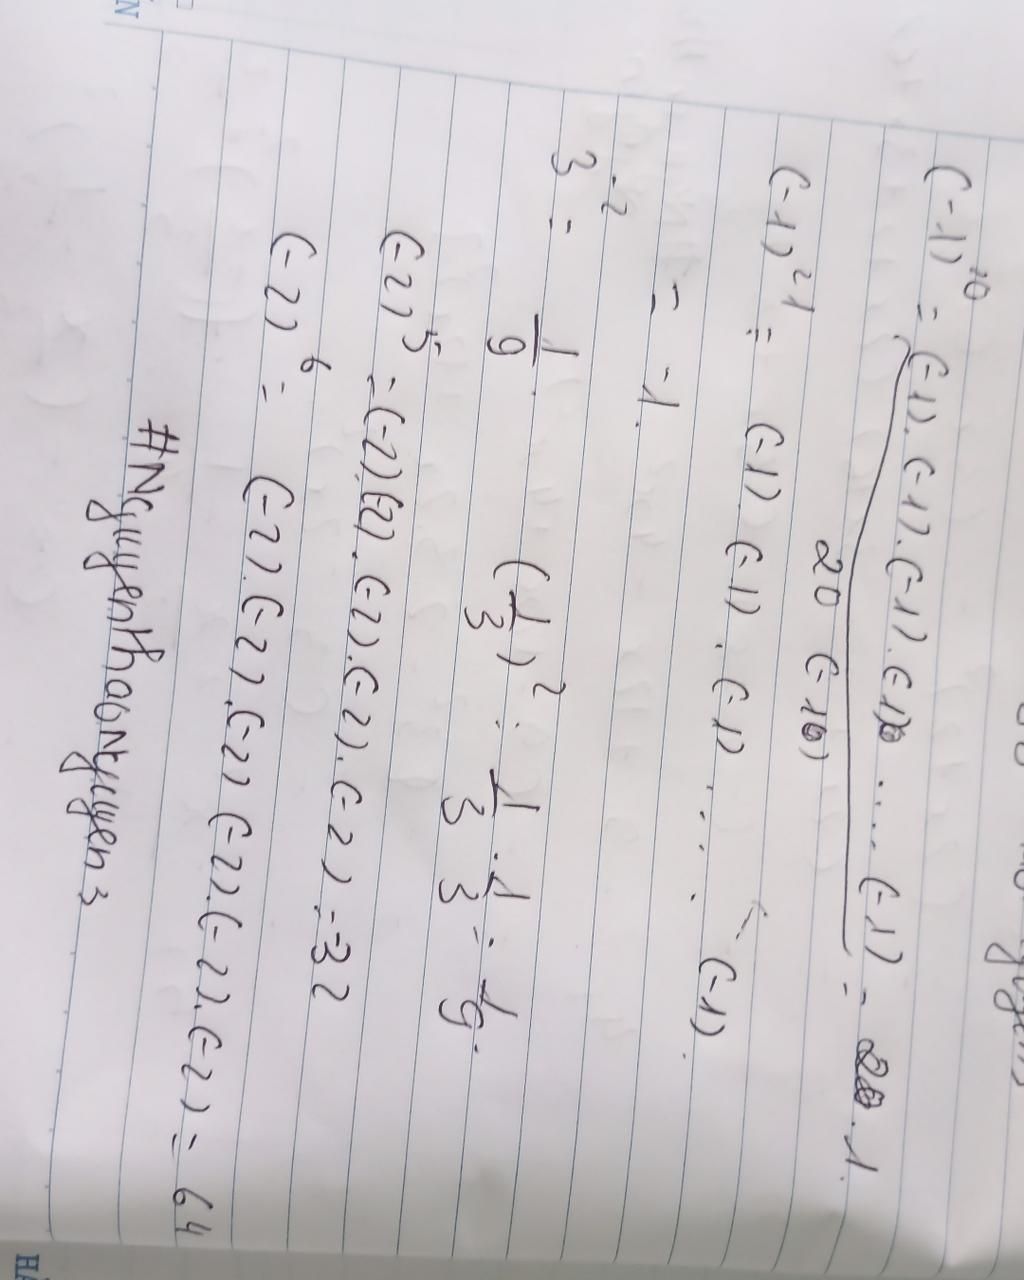 (-1)²⁰ = (-1).(-1).(-1).(-1) .... (-1) = 1.
20 (-1)
(-1)²¹ = (-1).(-1).(-1) .... (-1).
= -1.
3⁻² = 1/9. (1/3)² = 1/3 . 1/3 = 1/9.
(-2)⁵ = (-2).(-2).(-2).(-2).(-2) = -32
(-2)⁶ = (-2).(-2).(-2)(-2).(-2).(-2) = 64
#NguyenthaoNguyen3